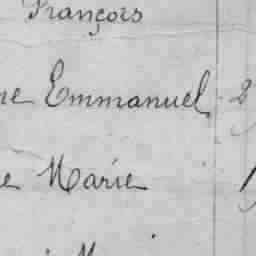 François
ne Emmanuel 2
e Marie